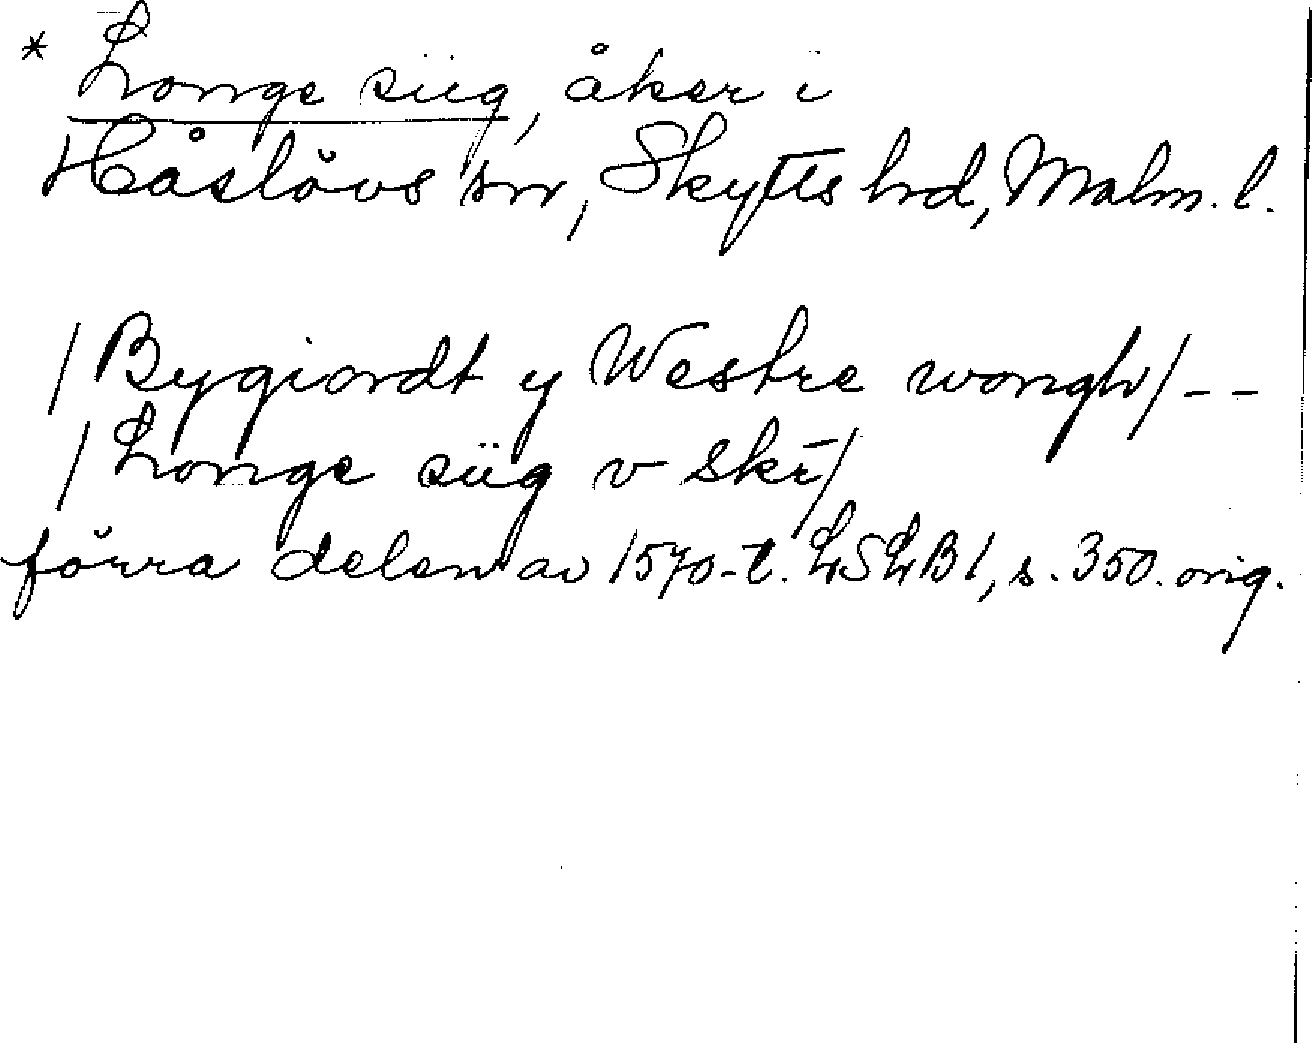 * Longe siig, åker i
Håslövs sn, Skytts hd, Malm. l.
/Bygiordt y Westre wongh/ --
/Longe siig v skr̄/
förra delen av 1570-t. LSLB1, s. 350. orig.